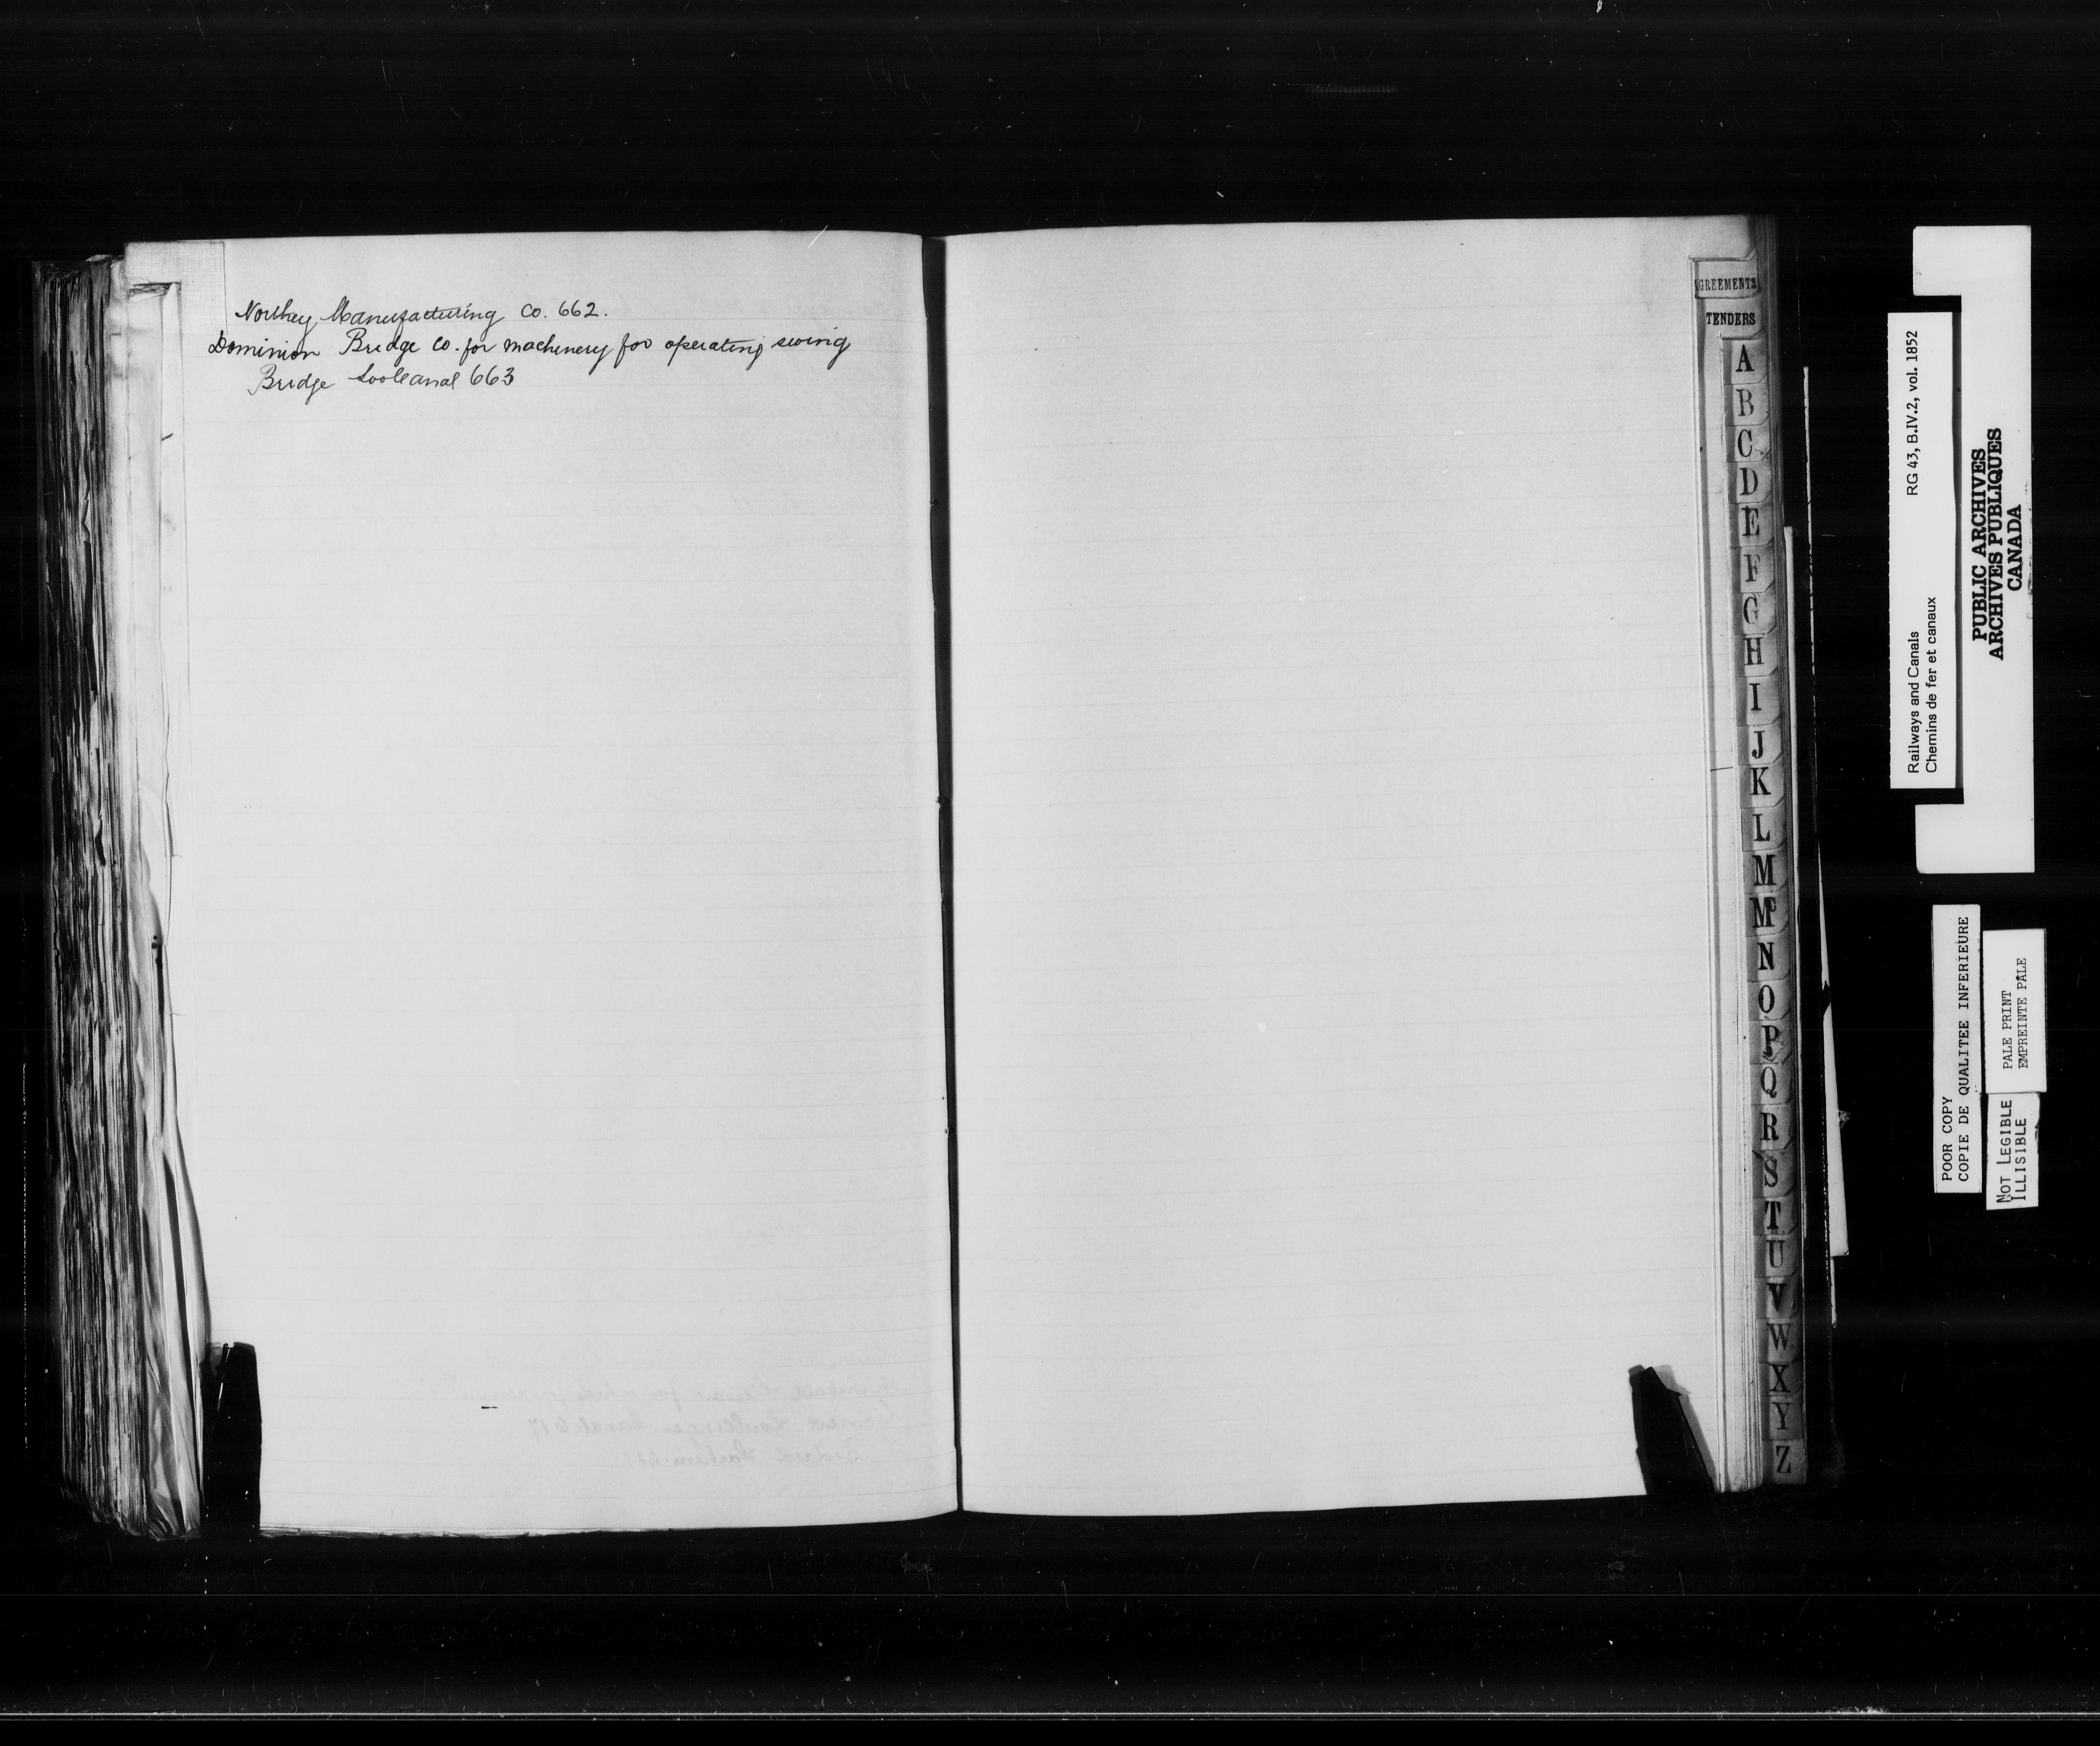 Northey Manufacturing Co. 662.
Dominion Bridge Co. for machinery for operating swing
Bridge Soo Canal 663
AGREEMENTS
TENDERS
A
B
C
D
E
F
G
H
I
J
K
L
M
Mc
N
O
P
Q
R
S
T
U
V
W
X
Y
Z
Railways and Canals RG 43, B.IV.2, vol. 1852
Chemins de fer et canaux
PUBLIC ARCHIVES
ARCHIVES PUBLIQUES
CANADA
POOR COPY
COPIE DE QUALITEE INFERIEURE
PALE PRINT
EMPREINTE PÂLE
NOT LEGIBLE
ILLISIBLE